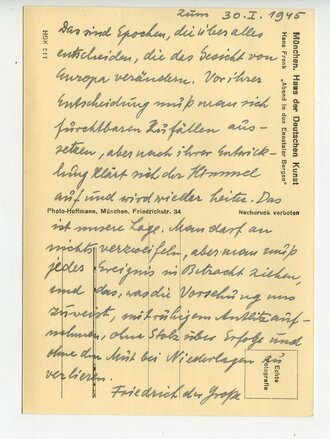 Zum 30.I.1945
Das sind Epochen, die über alles
entscheiden, die das Gesicht von
Europa verändern. Vor ihrer
Entscheidung muß man sich
furchtbaren Zufällen aus-
setzen, aber nach ihrer Entwick-
lung klärt sich der Himmel
auf und wird wieder heiter. Das
ist unsere Lage. Man darf an
nichts verzweifeln, aber man muß
jedes Ereignis in Betracht ziehen,
und das, was die Vorsehung uns
zuweist, mit ruhigem Antlitz auf-
nehmen, ohne Stolz über Erfolge und
ohne den Mut bei Niederlagen zu
verlieren.
Friedrich der Große
HDK 511
München, Haus der Deutschen Kunst
Hans Frank „Abend in den Ennstaler Bergen"
Photo-Hoffmann, München, Friedrichstr. 34
Nachdruck verboten
Echte